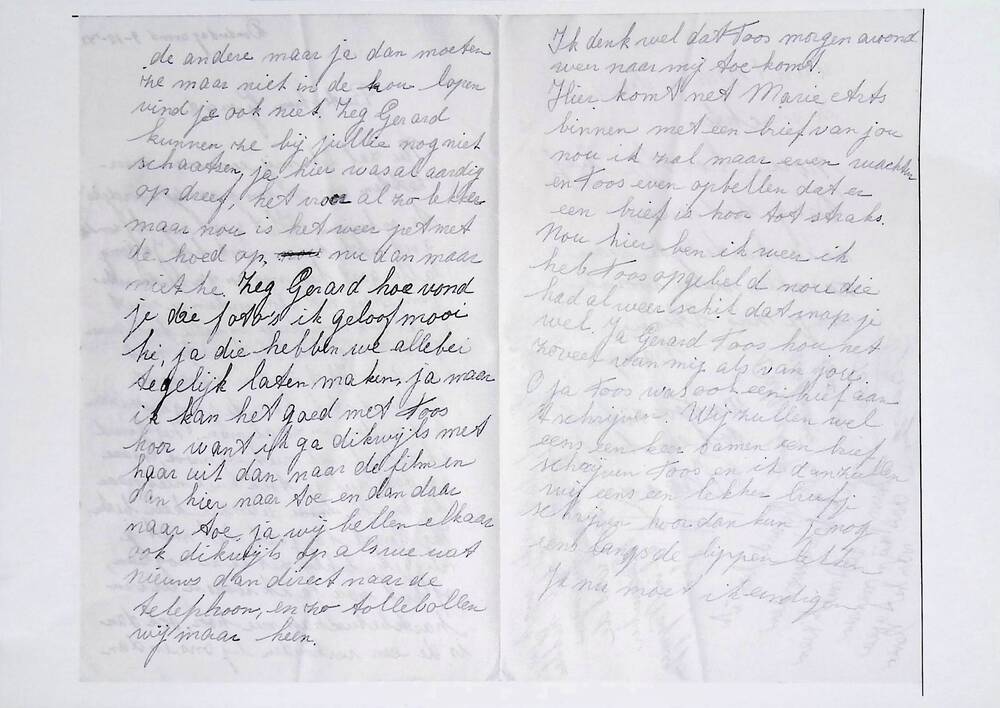 de andere maar ja dan moeten
ze maar niet in de kou lopen
vind je ook niet. Zeg Gerard
kunnen ze bij jullie nog niet
schaatsen, ja hier was al aardig
op dreef, het vroor al zo lekker
maar nou is het weer pet met
de hoed op, nu dan maar
niet he. Zeg Gerard hoe vond
je die foto's ik geloof mooi
hé, ja die hebben we allebei
tegelijk laten maken, ja maar
ik kan het goed met Toos
hoor want ik ga dikwijls met
haar uit dan naar de film en
dan hier naar toe en dan daar
naar toe, ja wij bellen elkaar
ook dikwijls op als we wat
nieuws dan direct naar de
telephoon, en zo tollebollen
wij maar heen.
Ik denk wel dat Toos morgen avond
weer naar mij toe komt.
Hier komt net Marie Arts
binnen met een brief van jou
nou ik zal maar even wachten
en Toos even opbellen dat er
een brief is hoor tot straks.
Nou hier ben ik weer ik
heb Toos opgebeld nou die
had al weer schik dat snap je
wel. Ja Gerard Toos hou net
zoveel van mij als van jou.
O ja Toos was ook een brief aan
't schrijven. Wij zullen wel
eens een keer samen een brief
schrijven Toos en ik dan zullen
wij eens een lekker brief
schrijven hoor dan kun je nog
eens langs de lippen likken
Ja nu moet ik eindigen